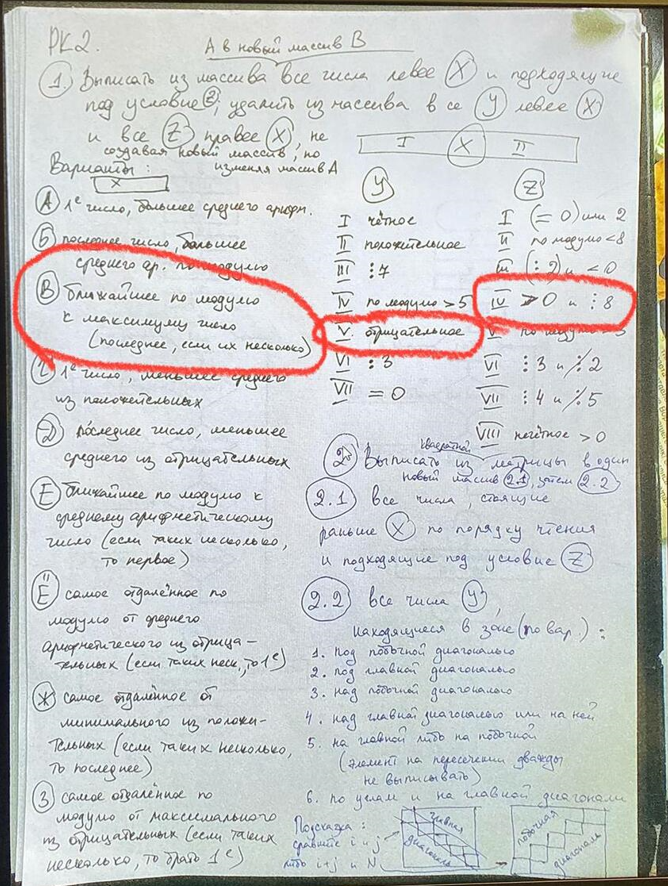 РК2.
А в новый массив В
1. Выписать из массива все числа левее X и подходящие
под условие Z; удалить из массива все Y левее X
и все Z правее X, не
создавая новый массив, но
изменяя массив А
I X II
Варианты:
X
Y
Z
А 1е число, большее среднего арифм.
Б последнее число, большее
среднего ар. по модулю
В ближайшее по модулю
к максимуму число
(последнее, если их несколько)
Г 1е число, меньшее среднего
из положительных
Д последнее число, меньшее
среднего из отрицательных
Е ближайшее по модулю к
среднему арифметическому
число (если таких несколько,
то первое)
Ё самое отдалённое по
модулю от среднего
арифметического из отрица-
тельных (если таких неск., то 1е)
Ж самое отдалённое от
минимального из положи-
тельных (если таких несколько,
то последнее)
З самое отдалённое по
модулю от максимального
из отрицательных (если таких
несколько, то брать 1е)
I чётное
II положительное
III ⋮7
IV по модулю > 5
V отрицательное
VI ⋮3
VII = 0
I (= 0) или 2
II по модулю < 8
III (⋮2) и < 0
IV > 0 и ⋮8
V по модулю
VI ⋮3 и ⋮̸2
VII ⋮4 и ⋮̸5
VIII нечётное > 0
2. Выписать из квадратной матрицы в один
новый массив 2.1, затем 2.2
2.1 все числа, стоящие
раньше X по порядку чтения
и подходящие под условие Z
2.2 все числа Y,
находящиеся в зоне (по вар.):
1. под побочной диагональю
2. под главной диагональю
3. над побочной диагональю
4. над главной диагональю или на ней
5. на главной либо на побочной
(элемент на пересечении дважды
не выписывать)
6. по углам и на главной диагонали
Подсказка:
сравните i и j
либо i+j и N
главная
диагональ
побочная
диагональ